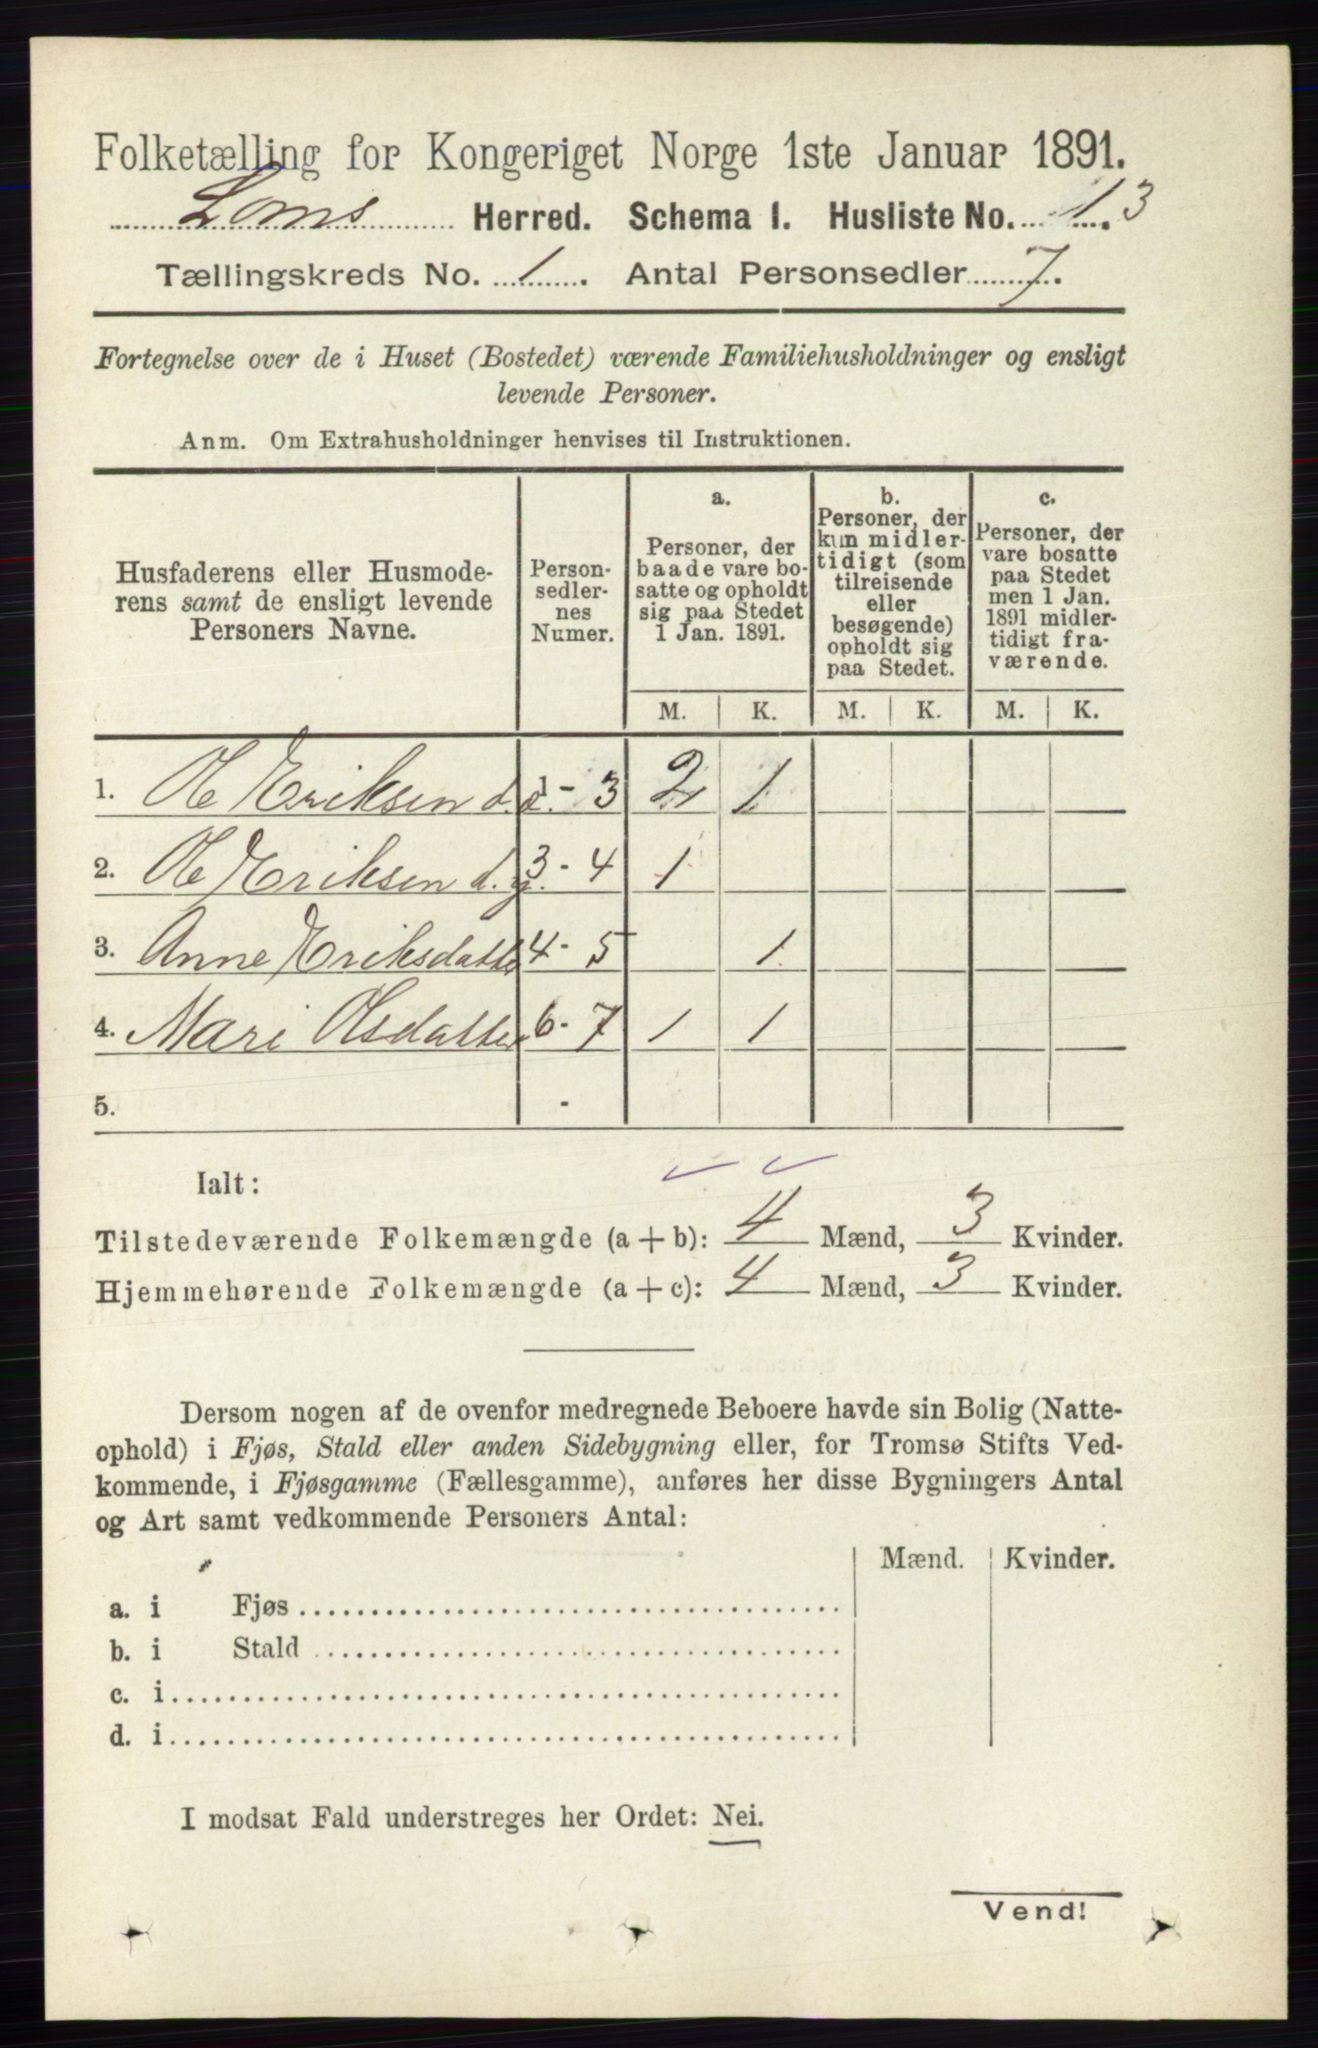 Folketælling for Kongeriget Norge 1ste Januar 1891.
Loms Herred. Schema I. Husliste No. 13
Tællingskreds No. 1. Antal Personsedler 7.
Fortegnelse over de i Huset (Bostedet) værende Familiehusholdninger og ensligt
levende Personer.
Anm. Om Extrahusholdninger henvises til Instruktionen.
Husfaderens eller Husmode-
rens samt de ensligt levende
Personers Navne.
Person-
sedler-
nes
Numer.
a.
Personer, der
baade vare bo-
satte og opholdt
sig paa Stedet
1 Jan. 1891.
b.
Personer, der
kun midler-
tidigt (som
tilreisende
eller
besøgende)
opholdt sig
paa Stedet.
c.
Personer, der
vare bosatte
paa Stedet
men 1 Jan.
1891 midler-
tidigt fra-
værende.
M. K. M. K. M. K.
1. Ole Eriksen d. 1 - 3 2 1
2. Ole Eriksen d. y. 3 - 4 1
3. Anne Eriksdatter 4 - 5 1
4. Mari Olsdatter 6 - 7 1 1
5. -
Ialt:
Tilstedeværende Folkemængde (a + b): 4 Mænd, 3 Kvinder.
Hjemmehørende Folkemængde (a + c): 4 Mænd, 3 Kvinder.
Dersom nogen af de ovenfor medregnede Beboere havde sin Bolig (Natte-
ophold) i Fjøs, Stald eller anden Sidebygning eller, for Tromsø Stifts Ved-
kommende, i Fjøsgamme (Fællesgamme), anføres her disse Bygningers Antal
og Art samt vedkommende Personers Antal:
Mænd. Kvinder.
a. i Fjøs
b. i Stald
c. i
d. i
I modsat Fald understreges her Ordet: Nei.
Vend!